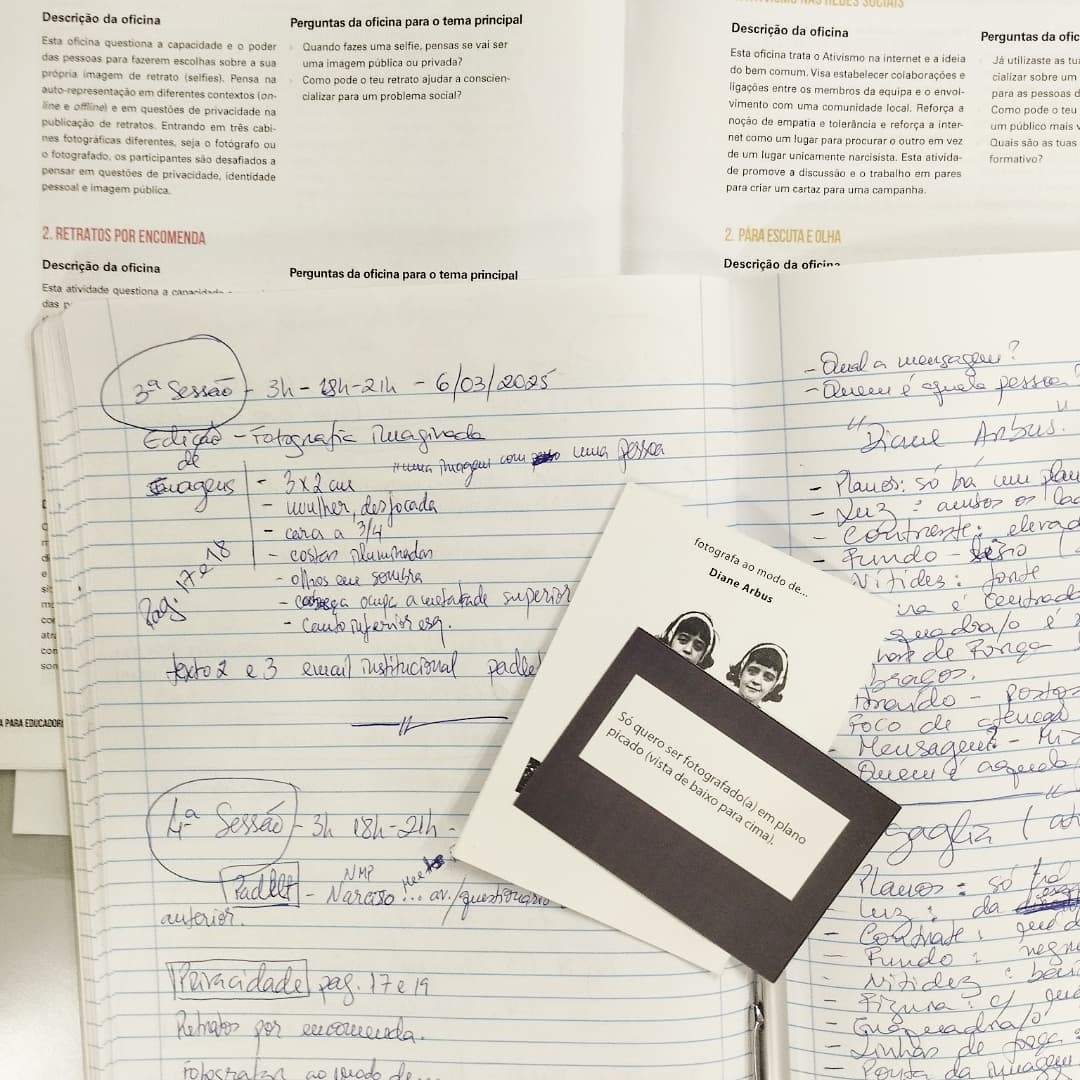 Descrição da oficina
Esta oficina questiona a capacidade e o poder
das pessoas para fazerem escolhas sobre a sua
própria imagem de retrato (selfies). Pensa na
auto-representação em diferentes contextos (on-
line e offline) e em questões de privacidade na
publicação de retratos. Entrando em três cabi-
nes fotográficas diferentes, seja o fotógrafo ou
o fotografado, os participantes são desafiados a
pensar em questões de privacidade, identidade
pessoal e imagem pública.
Perguntas da oficina para o tema principal
Quando fazes uma selfie, pensas se vai ser
uma imagem pública ou privada?
Como pode o teu retrato ajudar a conscien-
cializar para um problema social?
2. RETRATOS POR ENCOMENDA
Descrição da oficina
Esta atividade questiona a
das
Perguntas da oficina para o tema principal
NAS REDES SOCIAIS
Descrição da oficina
Esta oficina trata o Ativismo na internet e a ideia
do bem comum. Visa estabelecer colaborações e
ligações entre os membros da equipa e o envol-
vimento com uma comunidade local. Reforça a
noção de empatia e tolerância e reforça a inter-
net como um lugar para procurar o outro em vez
de um lugar unicamente narcisista. Esta ativida-
de promove a discussão e o trabalho em pares
para criar um cartaz para uma campanha.
Perguntas da ofic
Já utilizaste as tu
cializar sobre um
para as pessoas d
Como pode o teu
um público mais v
Quais são as tuas
formativo?
2. PÁRA ESCUTA E OLHA
Descrição da oficina
A PARA EDUCADOR
3ª Sessão - 3h - 18h-21h - 6/03/2025
Edição - Fotografia imaginada
de
Imagens
numa imagem com uma pessoa
- 3x2 cm
- mulher, desfocada
- cara a 3/4
- costas iluminadas
- olhos em sombra
- cabeça ocupa a metade superior
- Canto inferior esq.
Pag. 17 e 18
texto 2 e 3 email institucional padlet
4ª Sessão - 3h 18h-21h -
Padlet - Narciso... av./questionário
NMP
anterior.
Privacidade pag. 17 e 19
Retratos por encomenda.
Fotografar ao modo de...
fotografa ao modo de...
Diane Arbus
Só quero ser fotografado(a) em plano
picado (vista de baixo para cima).
- Qual a mensagem?
- Quem é aquela pessoa?
"Diane Arbus."
- Planos: só há um
- Luz: ambos os
- Contraste: elevad
- Fundo -
Nitidez: fonte
é centrad
é
de Força
braços.
- postos
Foco de atenção
- Mensagem? -
Quem é aquela
Planos: só há
Luz: da
- Contraste:
- Fundo: negr
- Nitidez:
- Figura: c/
- Enquadra/o
- Linhas de força
- Ponto da imagem